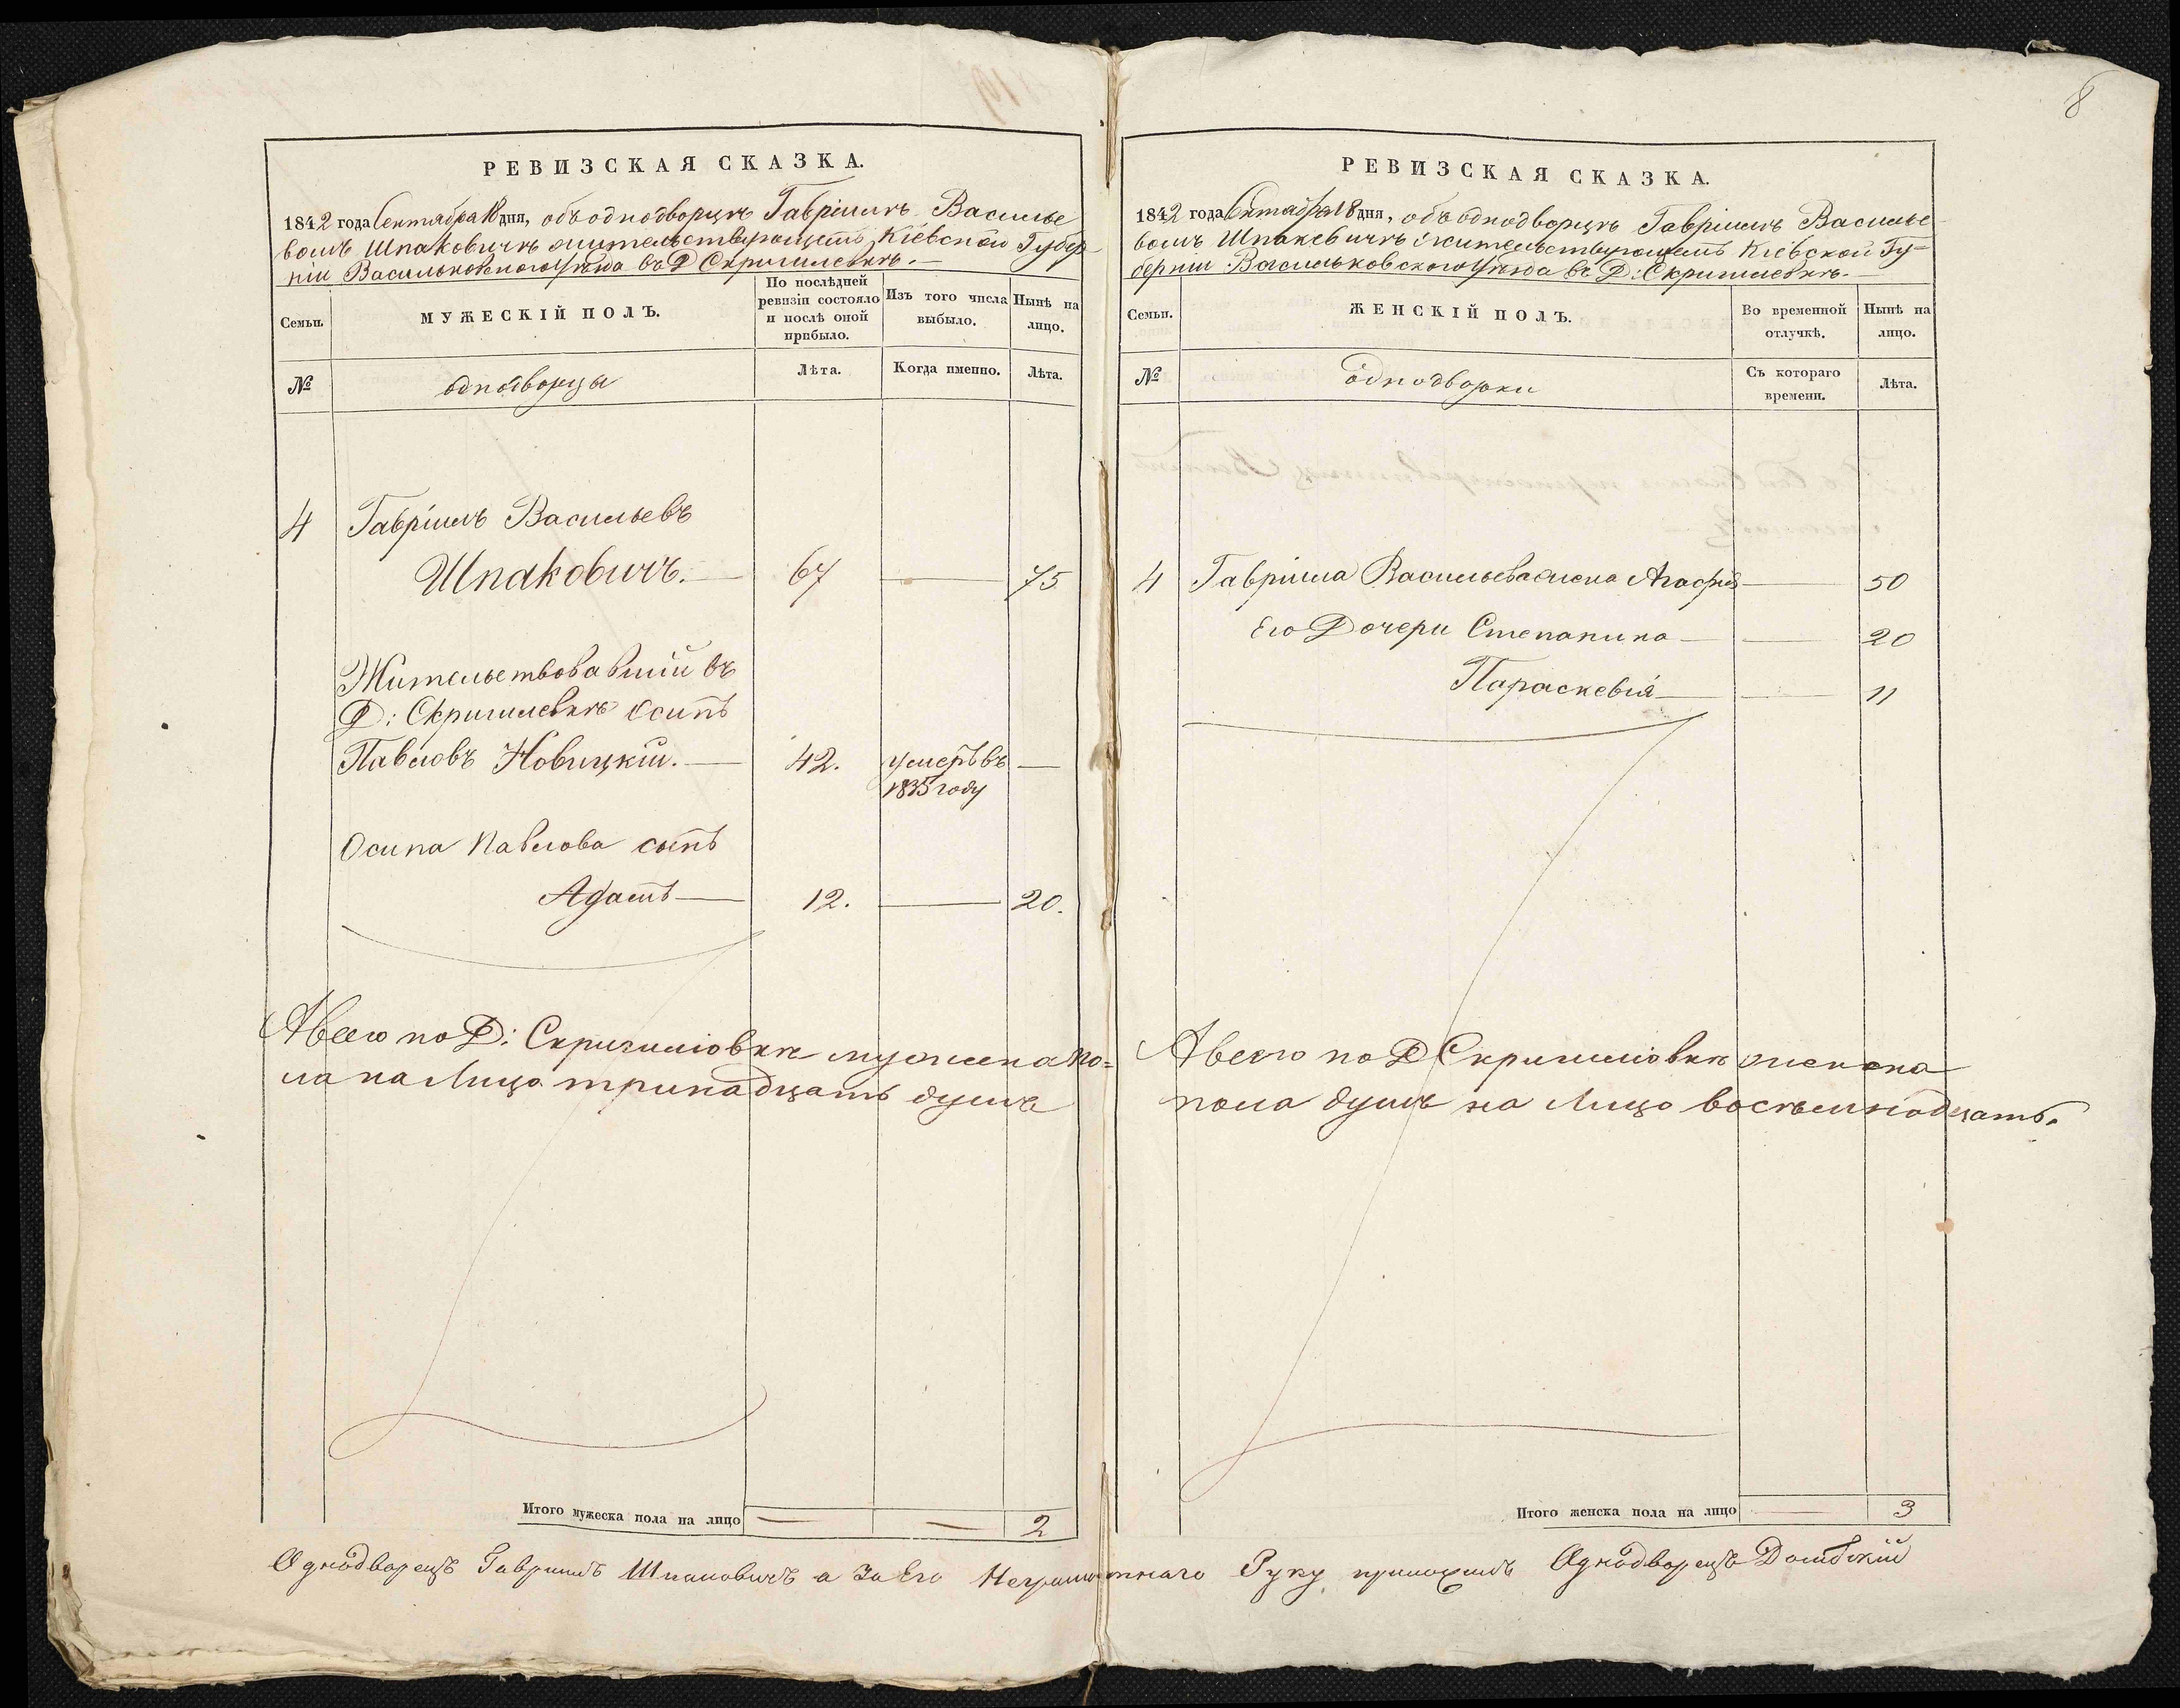 8
РЕВИЗСКАЯ СКАЗКА.
1842 года Сентября 18 дня, объ однодворцѣ Гавріилѣ Василье
вомъ Шпаковичѣ жительствующемъ Кіевской Губер
ніи Васильковскаго Уѣзда въ Д Скригилевкѣ.
Семьи.
МУЖЕСКІЙ ПОЛЪ.
По послѣдней
ревизіи состояло
и послѣ оной
прибыло.
Изъ того числа
выбыло.
Нынѣ на
лицо.
№
однодворцы
Лѣта.
Когда именно.
Лѣта.
4 Гавріилъ Васильевъ
Шпаковичъ. — 67 — 75
Жительствовавшій въ
Д: Скригилевкѣ Осипъ
Павловъ Новицкій. — 42. умеръ въ —
1835 году
Осипа Павлова сынъ
Адамъ — 12. — 20.
А всего по Д: Скригиліовкѣ мужеска по=
ла на лицо тринадцать душъ
Итого мужеска пола на лицо — — 2
РЕВИЗСКАЯ СКАЗКА.
1842 года Сентября 18 дня, объ однодворцѣ Гавріилѣ Василье
вомъ Шпакевичѣ жительствующемъ Кіевской Гу=
берніи Васильковскаго Уѣзда въ Д: Скригилевкѣ.
Семьи.
ЖЕНСКІЙ ПОЛЪ.
Во временной
отлучкѣ.
Нынѣ на
лицо.
№
однодворки
Съ котораго
времени.
Лѣта.
4 Гавріила Васильева жена Агафія — 50
Его Дочери Степанина — — 20
Параскевія — — 11
А всего по Д Скригиліовкѣ женска
пола душъ на лицо восемнадцать.
Итого женска пола на лицо — 3
Однодворецъ Гавріилъ Шпаковичъ а За Его Неграмотнаго Руку приложилъ Однодворецъ Домбскій